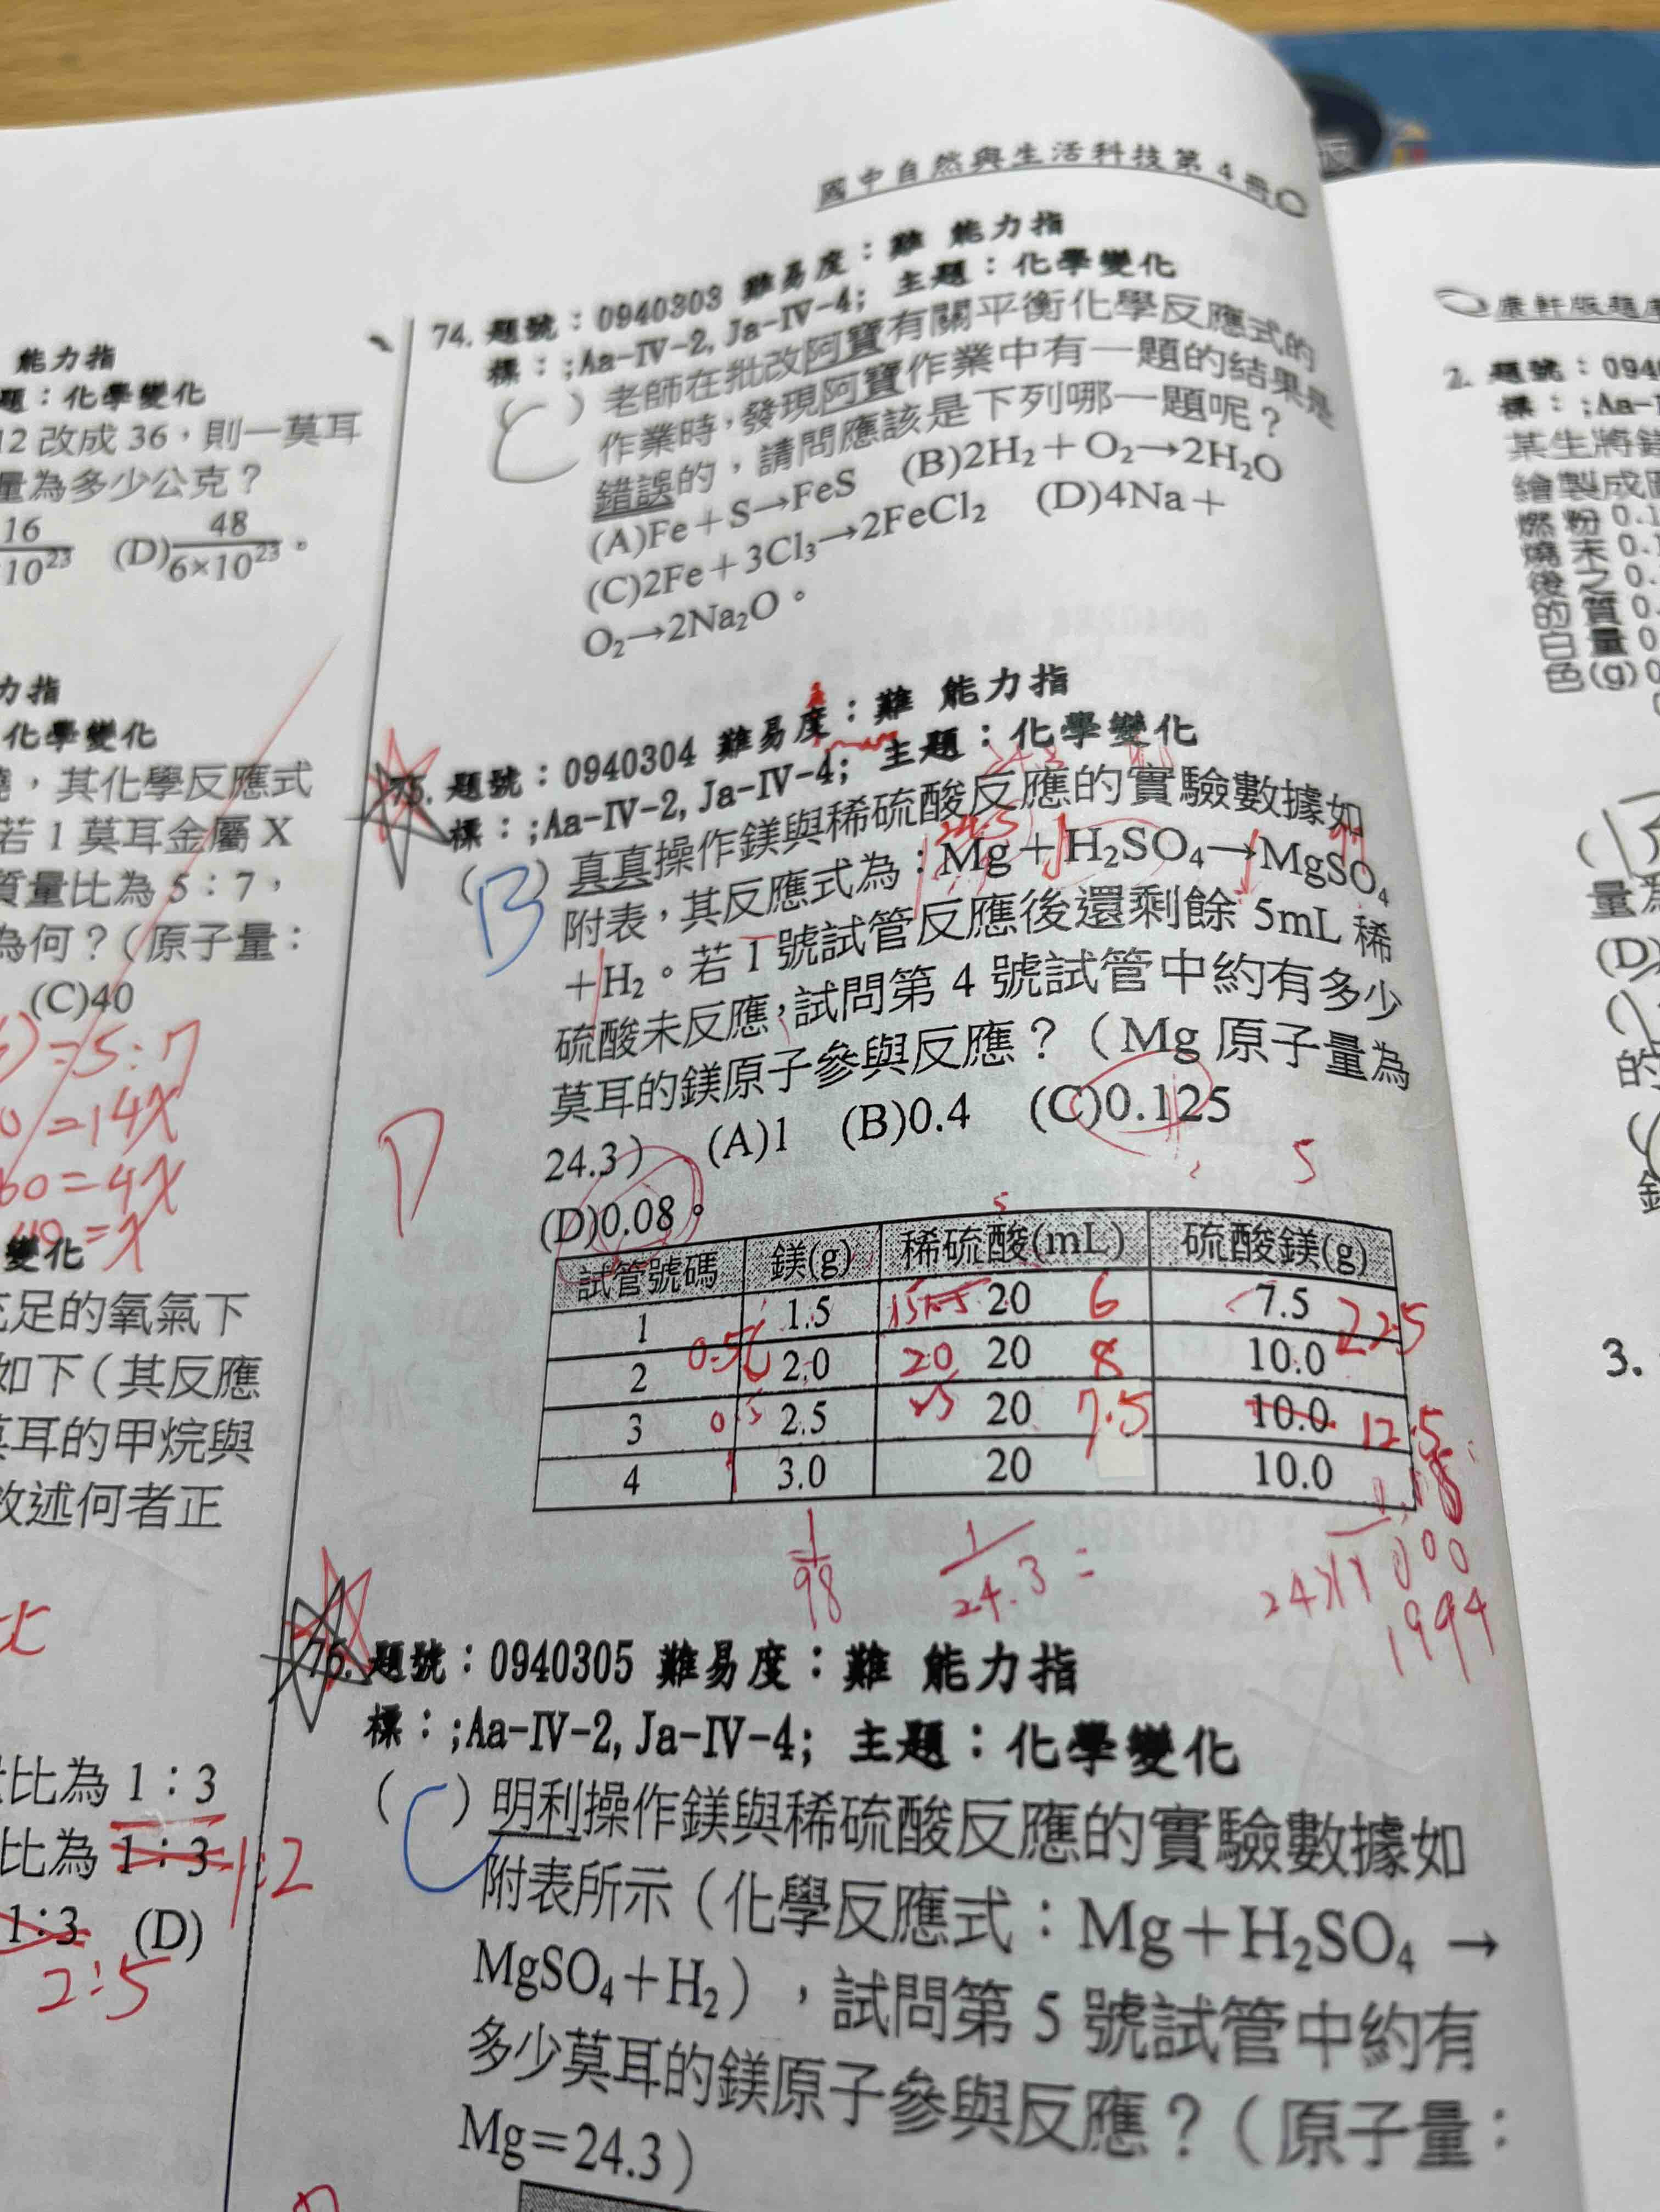 國中自然與生活科技第 4 冊
能力指
題：化學變化
12 改成 36，則一莫耳
量為多少公克？
16
10²³
(D) 48
6×10²³。
力指
化學變化
，其化學反應式
若 1 莫耳金屬 X
質量比為 5：7，
為何？(原子量：
(C)40
)=5:7
=14X
60=4X
=X
變化
充足的氧氣下
如下(其反應
莫耳的甲烷與
敘述何者正
比
比為 1：3
比為 1：3
1:2
1：3 (D)
2:5
74. 題號：0940303 難易度：難 能力指
標：;Aa-IV-2, Ja-IV-4; 主題：化學變化
( C ) 老師在批改阿寶有關平衡化學反應式的
作業時，發現阿寶作業中有一題的結果是
錯誤的，請問應該是下列哪一題呢？
(A)Fe＋S→FeS (B)2H₂＋O₂→2H₂O
(C)2Fe＋3Cl₃→2FeCl₂ (D)4Na＋
O₂→2Na₂O。
75. 題號：0940304 難易度：難 能力指
標：;Aa-IV-2, Ja-IV-4; 主題：化學變化
( B ) 真真操作鎂與稀硫酸反應的實驗數據如
附表，其反應式為：Mg＋H₂SO₄→MgSO₄
＋H₂。若 1 號試管反應後還剩餘 5mL 稀
硫酸未反應，試問第 4 號試管中約有多少
莫耳的鎂原子參與反應？（Mg 原子量為
24.3） (A)1 (B)0.4 (C)0.125
(D)0.08。
D
5
5
試管號碼 鎂(g) 稀硫酸(mL) 硫酸鎂(g)
1 1.5 20 6 7.5 22.5
0.5
2 2.0 20 20 8 10.0
3 0.5 2.5 20 7.5 10.0 12.5
4 1 3.0 20 10.0
1/98
1/24.3 =
1994
76. 題號：0940305 難易度：難 能力指
標：;Aa-IV-2, Ja-IV-4; 主題：化學變化
( C ) 明利操作鎂與稀硫酸反應的實驗數據如
附表所示（化學反應式：Mg＋H₂SO₄ →
MgSO₄＋H₂），試問第 5 號試管中約有
多少莫耳的鎂原子參與反應？（原子量：
Mg＝24.3）
康軒版題
2. 題號：094
標：;Aa-
某生將鎂
繪製成
燃 粉 0.1
燒 末 0.
後 之 0.
的 質 0.
白 量 0
色 (g) 0
量為
(D)
的
3.